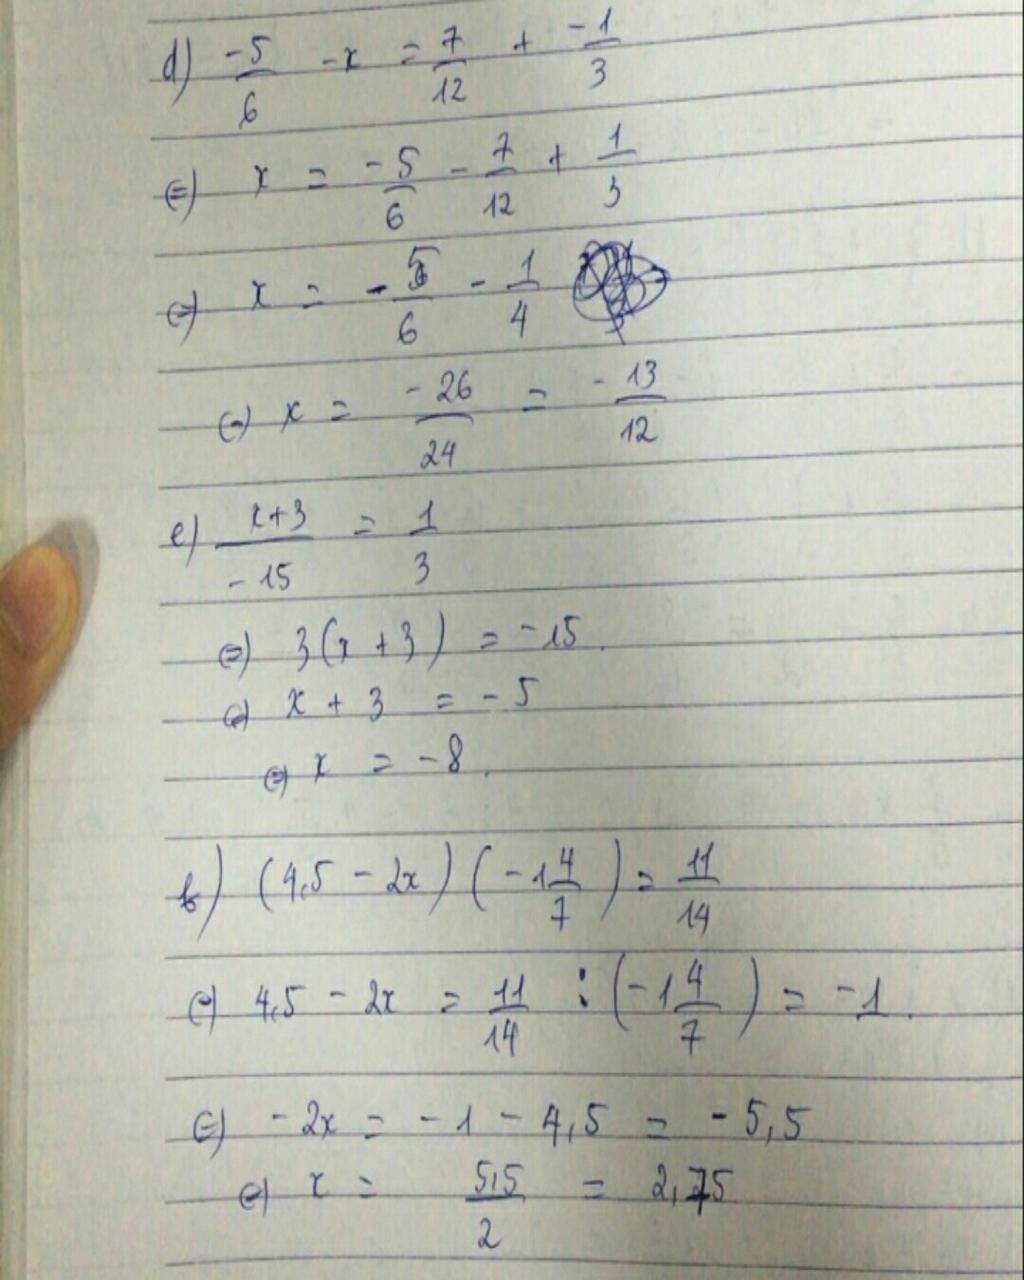 d) -5/6 - x = 7/12 + -1/3
⇔ x = -5/6 - 7/12 + 1/3
⇔ x = -5/6 - 1/4
⇔ x = -26/24 = -13/12
e) x+3/-15 = 1/3
⇔ 3(x + 3) = -15.
⇔ x + 3 = -5
⇔ x = -8.
b) (4,5 - 2x)(-1 4/7) = 11/14
⇔ 4,5 - 2x = 11/14 : (-1 4/7) = -1.
⇔ -2x = -1 - 4,5 = -5,5
⇔ x = 5,5/2 = 2,75